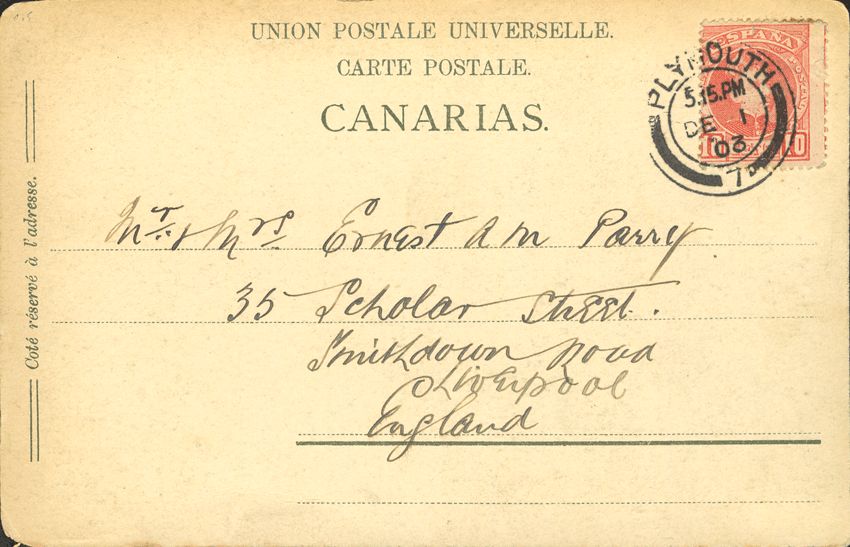 UNION POSTALE UNIVERSELLE.
CARTE POSTALE.
CANARIAS.
ESPAÑA
PLYMOUTH
5.15.PM
DE 1
03
Coté réservé à l'adresse.
Mr. & Mrs. Ernest A M Parry
35 Scholar Street.
Smithdown Road
Liverpool
England